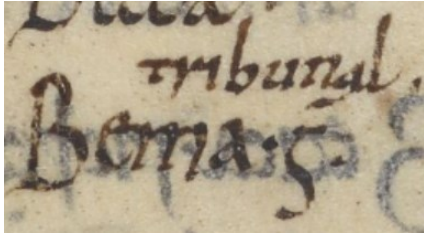 tribunal.
Bema·g·